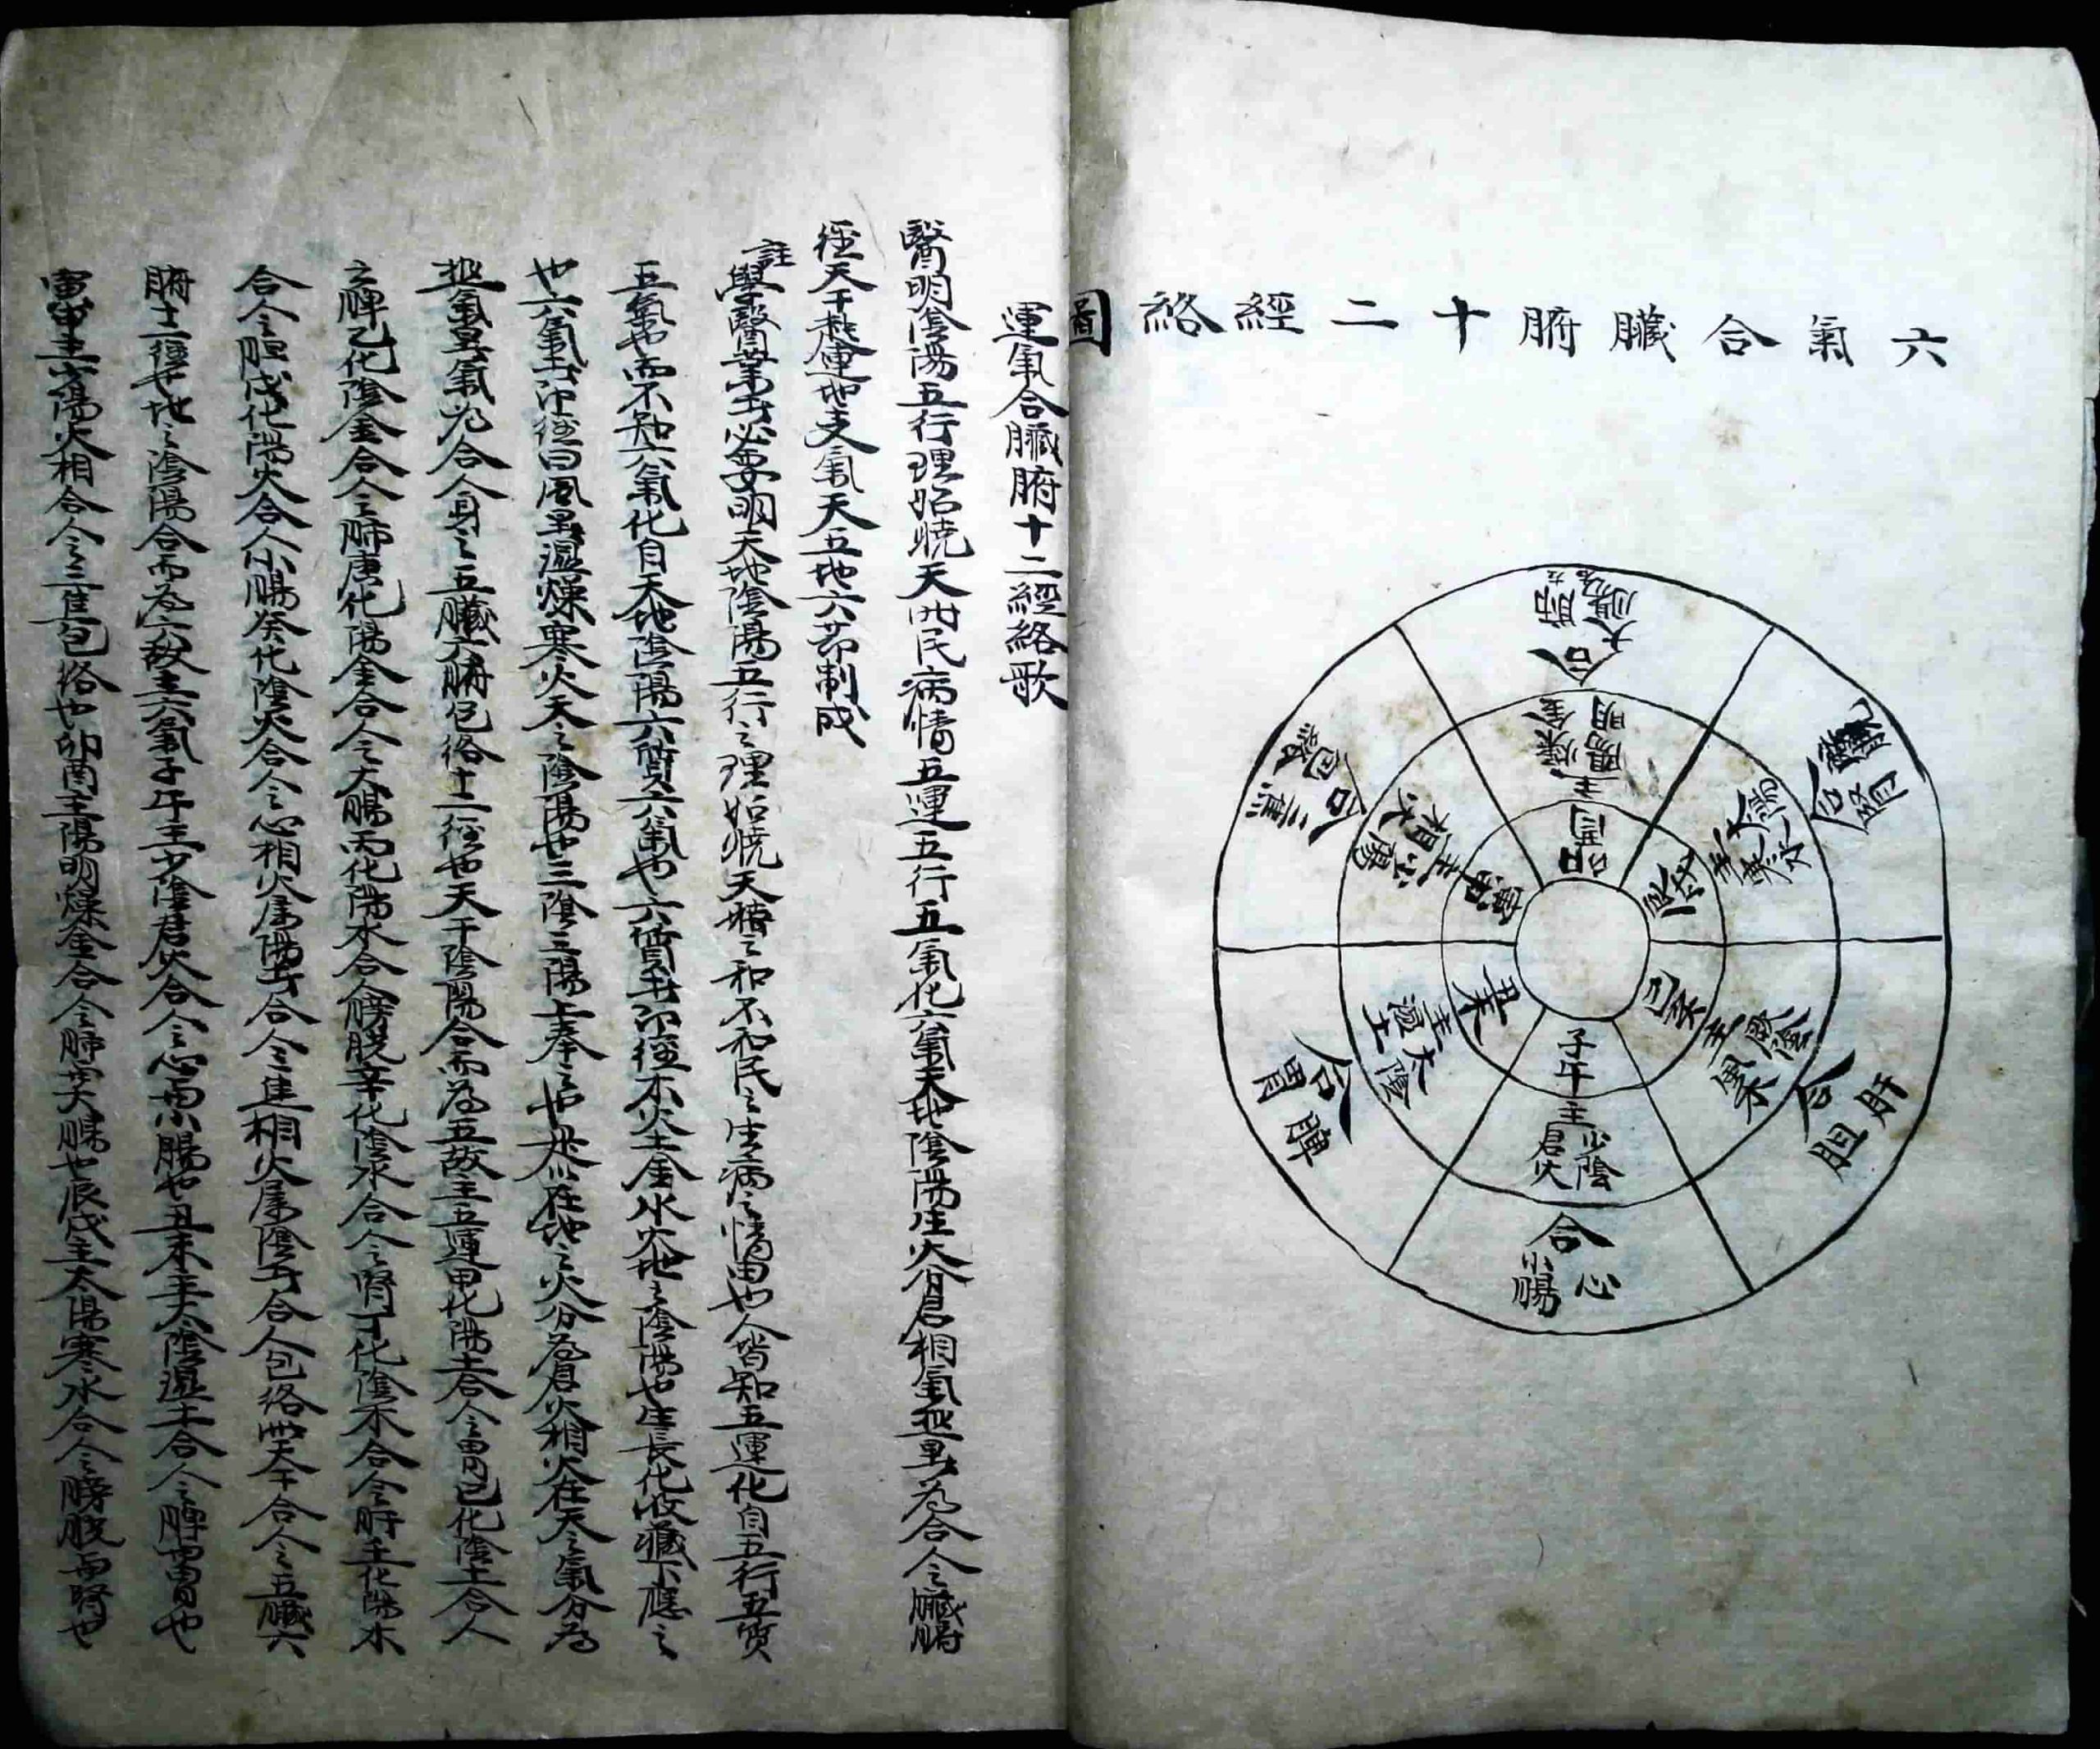 六氣合臟腑十二經絡圖
卯酉
主
陽明
燥金
合
大腸
肺
辰戌
主
太陽
寒水
合
腎
巳亥
主
厥陰
風木
合
肝
胆
子午
主
少陰
君火
合
心
小腸
丑未
主
太陰
湿土
合
脾
胃
寅申
主
少陽
相火
合
三焦
包絡
運氣合臟腑十二經絡歌
醫明陰陽五行理始曉天時民病情五運五行五氣化六氣天地陰陽生火分君相氣熱暑為合人之臟腑
經天干起運地支氣天五地六節制成
註
學醫業者必要明天地陰陽五行之理始曉天時之和不和民之生病之情由也人皆知五運化自五行五質
五氣也而不知六氣化自天地陰陽六質六氣也六質者即經木火土金水火地之陰陽也生長化收藏下應之
也六氣者即經曰風暑湿燥寒火天之陰陽也三陰三陽上奉之也是以在地之火分為君火相火在天之氣分為
熱氣暑氣為合人身之五臟六腑包絡十二經也天干陰陽合而為五故主五運甲化陽土合人之胃己化陰土合人
之脾乙化陰金合人之肺庚化陽金合人之大腸丙化陽水合人膀胱辛化陰水合人之腎丁化陰木合人之肝壬化陽木
合人之胆戊化陽火合人小腸癸化陰火合人之心相火属陽者合人之焦相火属陰者合人包絡此天干合人之五臟六
腑十二經也地之陰陽合而為六故主六氣子午主少陰君火合人之心與小腸也丑未主太陰湿土合人之脾與胃也
寅申主少陽火相合人之三焦包絡也卯酉主陽明燥金合人之肺與大腸也辰戌主太陽寒水合人之膀胱與腎也